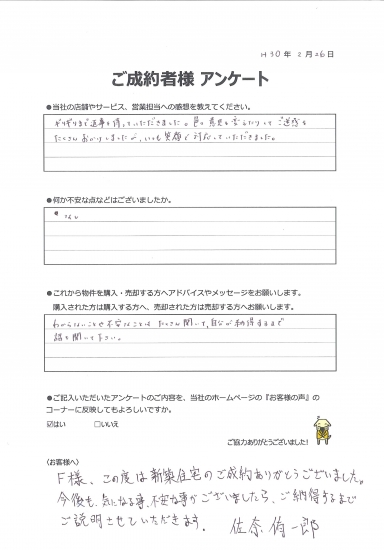 H30年 2月26日
ご成約者様 アンケート
●当社の店舗やサービス、営業担当への感想を教えてください。
ギリギリまで返事を待っていただきました。色々意見も変えたりしてご迷惑を
たくさんおかけしましたが、いつも笑顔で対応していただきました。
●何か不安な点などはございましたか。
●これから物件を購入・売却する方へアドバイスやメッセージをお願いします。
購入された方は購入する方へ、売却された方は売却する方へお願いします。
わからないことや不安なことは たくさん聞いて、自分が納得するまで
話を聞いて下さい。
●ご記入いただいたアンケートのご内容を、当社のホームページの『お客様の声』の
コーナーに反映してもよろしいですか。
☑はい □いいえ
ご協力ありがとうございました!
〈お客様へ〉
F様、この度は新築住宅のご成約ありがとうございました。
今後も、気になる事、不安な事がございましたら、ご納得するまで
ご説明させていただきます。 佐奈 脩一郎